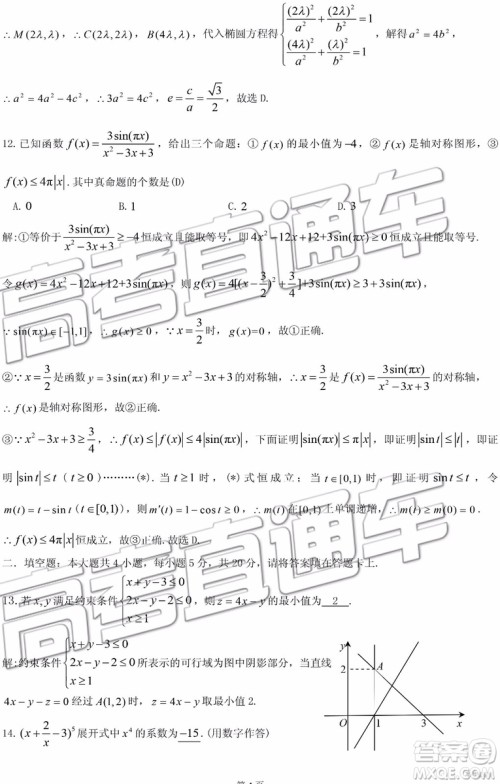 ∴ M(2λ,λ), ∴ C(2λ,2λ), B(4λ,λ), 代入椭圆方程得 { (2λ)²/a² + (2λ)²/b² = 1, (4λ)²/a² + (λ)²/b² = 1 , 解得 a² = 4b²,
∴ a² = 4a² − 4c², ∴ 3a² = 4c², e = c/a = √3/2, 故选 D.
12. 已知函数 f(x) = 3sin(πx)/(x²−3x+3), 给出三个命题: ① f(x) 的最小值为 −4, ② f(x) 是轴对称图形, ③
f(x) ≤ 4π|x|. 其中真命题的个数是(D)
A. 0 B. 1 C. 2 D. 3
解:①等价于 3sin(πx)/(x²−3x+3) ≥ −4 恒成立且能取等号, 即 4x²−12x+12+3sin(πx) ≥ 0 恒成立且能取等号.
令 g(x) = 4x²−12x+12+3sin(πx), 则 g(x) = 4[(x−3/2)²+3/4]+3sin(πx) ≥ 3+3sin(πx),
∵ sin(πx) ∈ [−1,1], ∴ g(x) ≥ 0, ∵ x = 3/2 时, g(x)=0, 故①正确.
②∵ x = 3/2 是函数 y = 3sin(πx) 和 y = x²−3x+3 的对称轴, ∴ x = 3/2 是 f(x) = 3sin(πx)/(x²−3x+3) 的对称轴,
∴ f(x) 是轴对称图形, 故②正确.
③∵ x²−3x+3 ≥ 3/4, ∴ f(x) ≤ |f(x)| ≤ 4|sin(πx)|, 下面证明 |sin(πx)| ≤ π|x|, 即证明 |sin t| ≤ |t|, 即证
明 |sin t| ≤ t (t ≥ 0)………(*). 当 t ≥ 1 时, (*)式恒成立; 当 t∈[0,1) 时, 即证明 sin t ≤ t, 令
m(t) = t − sin t (t∈[0,1)), 则 m'(t) = 1 − cos t ≥ 0, ∴ m(t) 在 [0,1) 上单调递增, ∴ m(t) ≥ m(0) = 0.
∴ f(x) ≤ 4π|x| 恒成立, 故③正确.故选 D.
二、填空题: 本大题共 4 小题, 每小题 5 分, 共 20 分, 请将答案填在答题卡上.
13. 若 x, y 满足约束条件 { x+y−3≤0, 2x−y−2≤0, x≥1 , 则 z = 4x − y 的最小值为 2 .
解:约束条件 { x+y−3≤0, 2x−y−2≤0, x≥1 所表示的可行域为图中阴影部分, 当直线
4x − y = z 经过 A(1,2) 时, z = 4x − y 取最小值 2.
y
2
A
O 1 3 x
14. (x + 2/x − 3)⁵ 展开式中 x⁴ 的系数为 −15 . (用数字作答)
高考直通车
高考直通车
答案圈